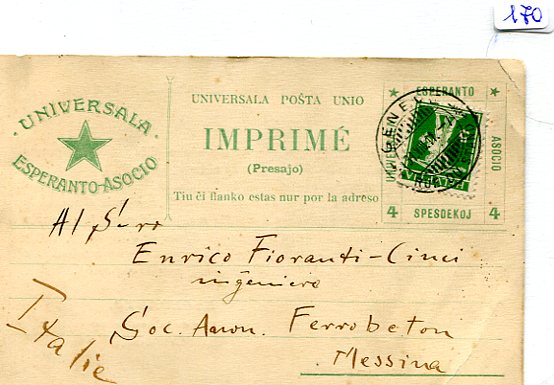 170
UNIVERSALA
ESPERANTO-ASOCIO
UNIVERSALA POŜTA UNIO
IMPRIMÉ
(Presaĵo)
Tiu ĉi flanko estas nur por la adreso
ESPERANTO
ASOCIO
4 SPESDEKOJ 4
Al S-ro
Enrico Fioranti-Cinci
ingeniero
Soc. Anon. Ferrobeton
Messina
Italie